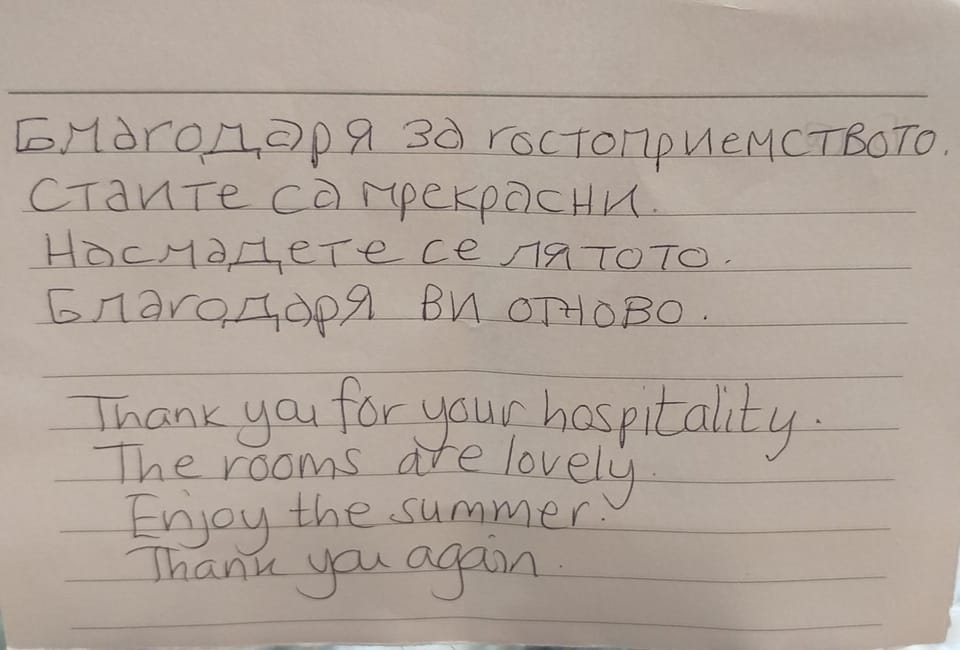 Благодаря за гостоприемството.
Стаите са прекрасни.
Насладете се лятото.
Благодаря ви отново.
Thank you for your hospitality.
The rooms are lovely.
Enjoy the summer.
Thank you again.